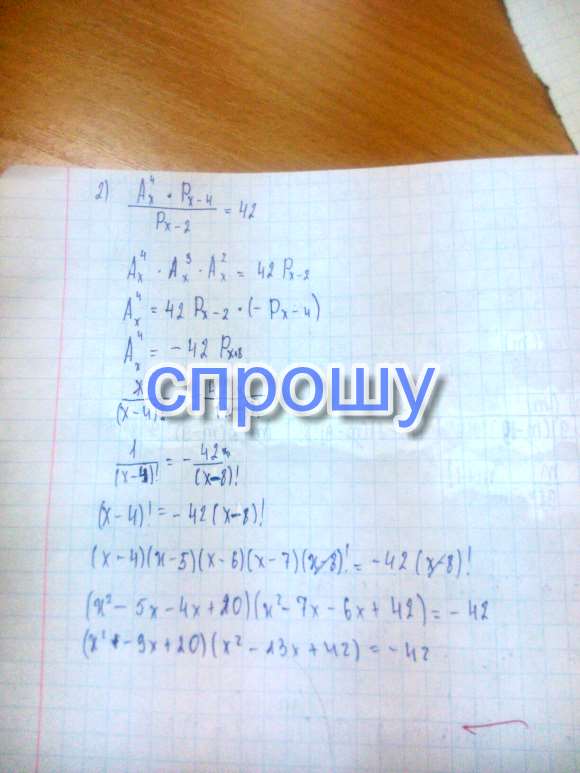 2) A⁴ₓ · Pₓ₋₄ / Pₓ₋₂ = 42
A⁴ₓ · A³ₓ · A²ₓ = 42 Pₓ₋₂
A⁴ₓ = 42 Pₓ₋₂ · (− Pₓ₋₄)
A⁴ₓ = − 42
спрошу
1 / (x−4)! = − 42 / (x−8)!
(x−4)! = −42 (x−8)!
(x−4)(x−5)(x−6)(x−7)(x−8)! = −42 (x−8)!
(x² − 5x − 4x + 20)(x² − 7x − 6x + 42) = − 42
(x² − 9x + 20)(x² − 13x + 42) = − 42